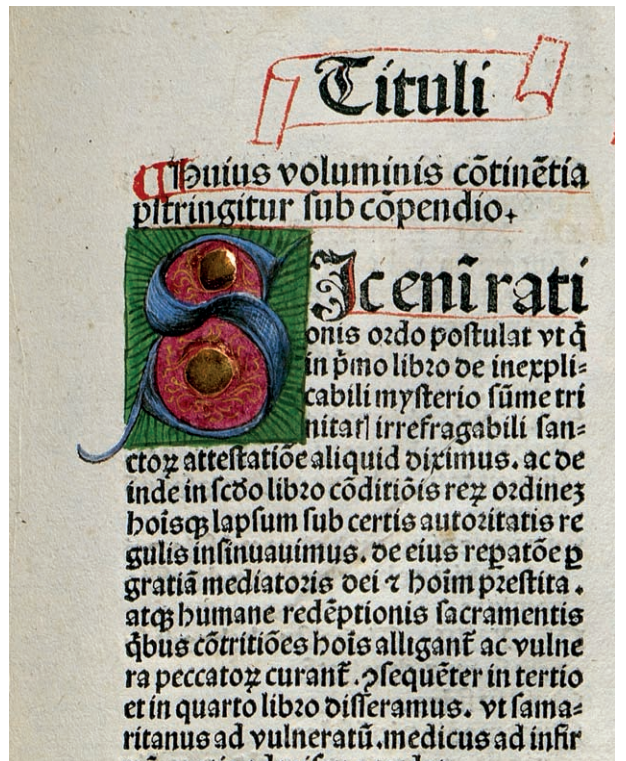 Tituli
¶ Huius voluminis cōtinētia
pſtringitur ſub cōpendio.
SIc eni̅ rati
onis ordo poſtulat vt q̄
in p̄mo libro de inexpli⸗
cabili myſterio ſūme tri
nitatꝭ irrefragabili ſan⸗
ctoꝝ atteſtatiōe aliquid diximus. ac de
inde in ſcd̄o libro cōditiōis reꝝ ordineꝫ
hoīsqꝫ lapſum ſub certis autoritatis re
gulis inſinuauimus. de eius reꝑatōe ꝑ
gratiā mediatoris dei ⁊ hoīm preſtita.
atqꝫ humane redēptionis ſacramentis
q̄bus cōtritiōes hoīs alligant̄ ac vulne
ra peccatoꝝ curant̄. ꝯſequēter in tertio
et in quarto libro diſſeramus. vt ſama⸗
ritanus ad vulneratū. medicus ad infir